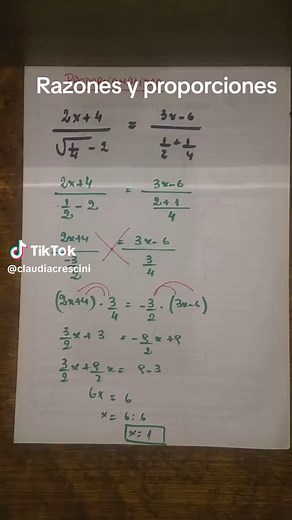 Razones y proporciones
2x+4 / √(1/4) - 2 = 3x-6 / 1/2 + 1/4
2x+4 / 1/2 - 2 = 3x-6 / 2+1/4
2x+4 / -3/2 = 3x-6 / 3/4
TikTok
@claudiacrescini
(2x+4) · 3/4 = -3/2 · (3x-6)
3/2 x + 3 = -9/2 x + 9
3/2 x + 9/2 x = 9-3
6x = 6
x = 6:6
x = 1